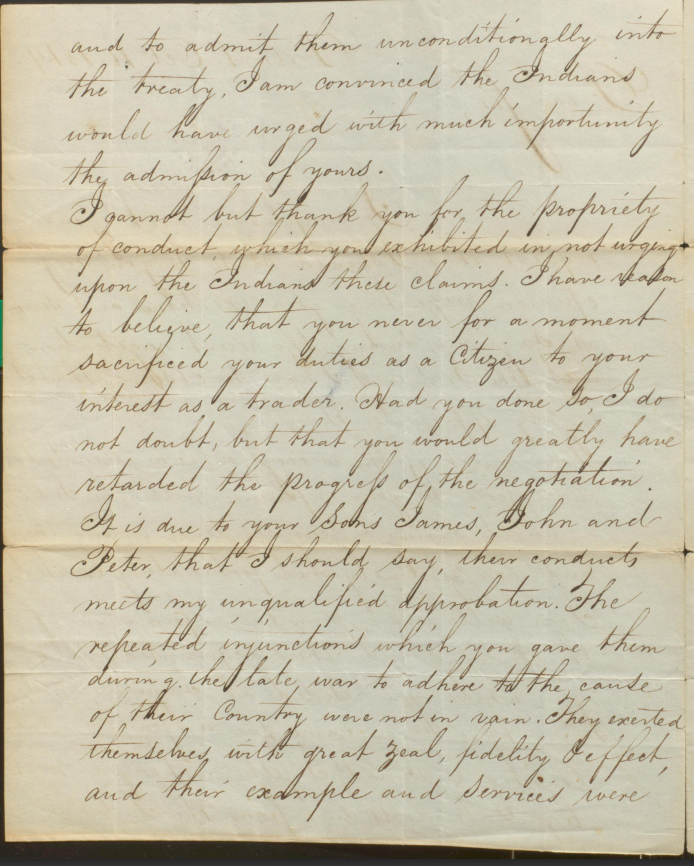 and to admit them unconditionally into
the treaty, I am convinced the Indians
would have urged with much importunity
the admission of yours.
I cannot but thank you for the propriety
of conduct, which you exhibited in not urging
upon the Indians these claims. I have reason
to believe, that you never for a moment
sacrificed your duties as a Citizen to your
interest as a trader. Had you done so, I do
not doubt, but that you would greatly have
retarded the progress of the negotiation.
It is due to your Sons James, John and
Peter, that I should say, their conduct
meets my unqualified approbation. The
repeated injunctions which you gave them
during the late war to adhere to the cause
of their Country were not in vain. They exerted
themselves with great zeal, fidelity & effect,
and their example and services were